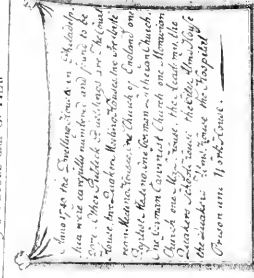 Anno 1749 the Dwelling Houses in Philadelphia
were carefully numbered and found to be
Other Publick Buildings are The Court
House two Quaker Meeting Houses two Presbyterian
Meeting Houses one Church of England one
Baptist Meeting one German Lutheran Church
One German Calvinist Church one Moravian
Church one Mass House the Academy the
Quakers School House the City Alms House
the Quaker Alms House the Hospital
Prison and Work House.